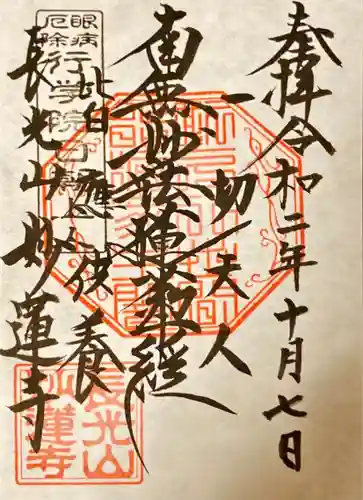 奉拝令和二年十月七日
一切天人
南無妙法蓮華経
此皆應供養
眼病
厄除
行学院日朝
長光山妙蓮寺
長光山
妙蓮寺